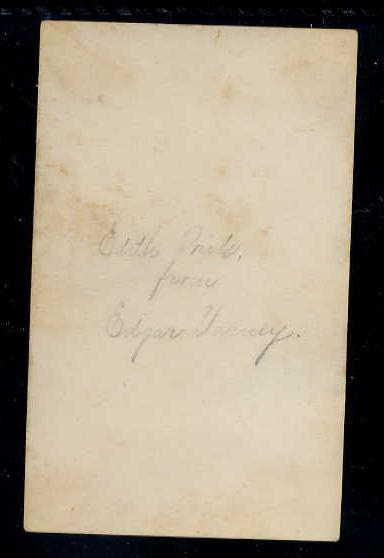 Edith
from
Edgar Varney.